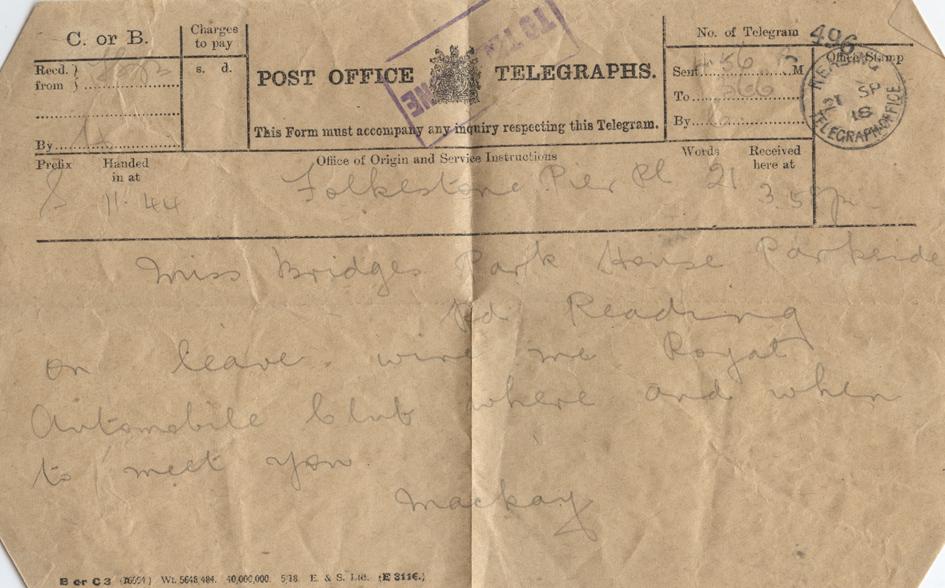 C. or B.
Charges
to pay
No. of Telegram 496
Recd. }
from }
s. d.
POST OFFICE TELEGRAPHS.
Sent M
Office Stamp
To
READING
21 SP
18
TELEGRAPH OFFICE
By
By
This Form must accompany any inquiry respecting this Telegram.
Prefix
Handed
in at
Office of Origin and Service Instructions
Words
Received
here at
S 11.44 Folkestone Pier Pl 21
Miss Bridges Park House Parkside
Rd Reading
on leave wire me Royal
Automobile Club where and when
to meet you
Mackay
B or C 3 Wt. 5648,484. 40,000,000. 5/18 E. & S. Ltd. (E 3116.)